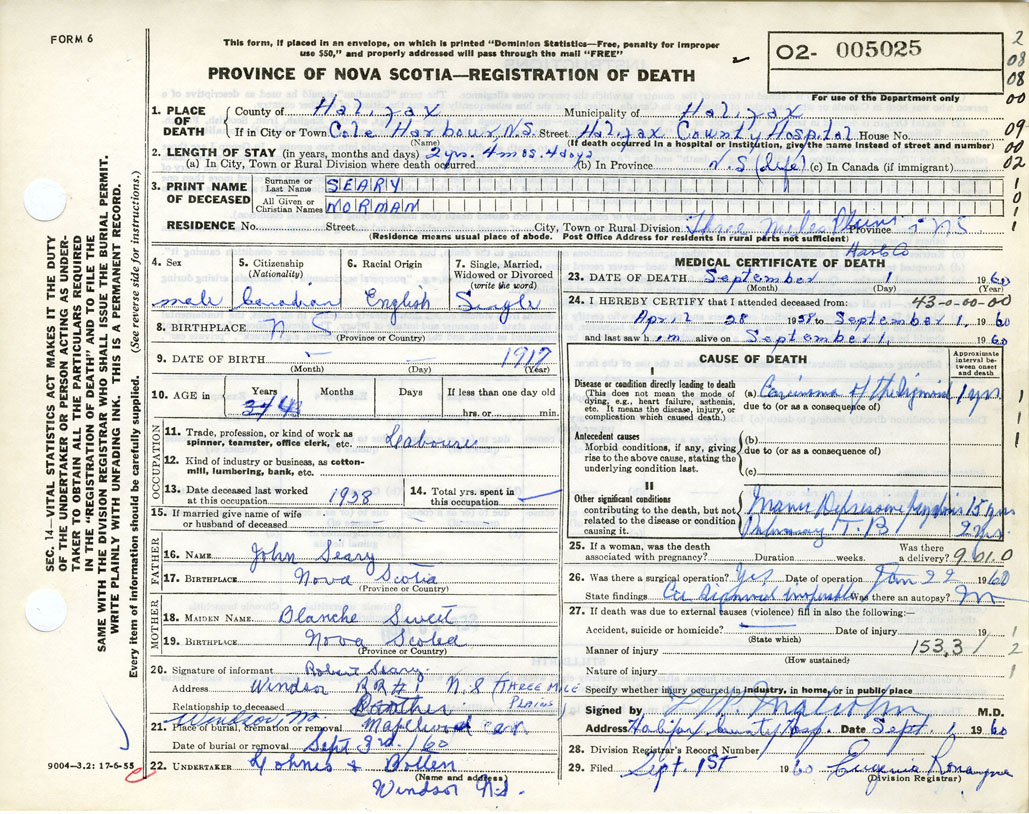 FORM 6
This form, if placed in an envelope, on which is printed "Dominion Statistics—Free, penalty for improper
use $50," and properly addressed will pass through the mail "FREE"
O2- 005025
For use of the Department only
PROVINCE OF NOVA SCOTIA—REGISTRATION OF DEATH
2
08
08
00
09
00
02
1. PLACE OF DEATH
County of Halifax Municipality of Halifax
If in City or Town Cole Harbour, N.S. Street Halifax County Hospital House No.
(Name) (If death occurred in a hospital or institution, give the name instead of street and number)
2. LENGTH OF STAY (in years, months and days) 2 yrs. 4 mos. 4 days
(a) In City, Town or Rural Division where death occurred (b) In Province N.S (life) (c) In Canada (if immigrant)
3. PRINT NAME OF DECEASED
Surname or Last Name SEARY
All Given or Christian Names NORMAN
RESIDENCE No. Street City, Town or Rural Division Three Miles Plains Province NS
(Residence means usual place of abode. Post Office Address for residents in rural parts not sufficient)
Hants Co
4. Sex male
5. Citizenship (Nationality) Canadian
6. Racial Origin English
7. Single, Married, Widowed or Divorced (write the word) Single
8. BIRTHPLACE N S
(Province or Country)
9. DATE OF BIRTH — — 1917
(Month) (Day) (Year)
10. AGE in Years 43 Months Days If less than one day old
hrs. or min.
OCCUPATION
11. Trade, profession, or kind of work as spinner, teamster, office clerk, etc. Labourer
12. Kind of industry or business, as cotton-mill, lumbering, bank, etc.
13. Date deceased last worked at this occupation 1938
14. Total yrs. spent in this occupation —
15. If married give name of wife or husband of deceased
FATHER
16. NAME John Seary
17. BIRTHPLACE Nova Scotia
(Province or Country)
MOTHER
18. MAIDEN NAME Blanche Sweet
19. BIRTHPLACE Nova Scotia
(Province or Country)
20. Signature of informant Robert Seary
Address Windsor RR#1 N.S (THREE MILE PLAINS)
Relationship to deceased Brother
Windsor, N.S.
21. Place of burial, cremation or removal Maplewood cem
Date of burial or removal Sept 3rd /60
22. UNDERTAKER
(Name and address)
Windsor N.S.
9004—3.2: 17-6-55
MEDICAL CERTIFICATE OF DEATH
23. DATE OF DEATH September 1 1960
(Month) (Day)
24. I HEREBY CERTIFY that I attended deceased from: 43-0-00-00
April 28 1958 to September 1, 1960
and last saw him alive on September 1, 1960
CAUSE OF DEATH
Approximate interval between onset and death
I
Disease or condition directly leading to death
(This does not mean the mode of dying, e.g., heart failure, asthenia, etc. It means the disease, injury, or complication which caused death.)
(a) Carcinoma of the Sigmoid 1 yr.
due to (or as a consequence of)
Antecedent causes
Morbid conditions, if any, giving rise to the above cause, stating the underlying condition last.
(b)
due to (or as a consequence of)
(c)
II
Other significant conditions
contributing to the death, but not related to the disease or condition causing it.
Manic Depressive Psychosis 15 yrs
Pulmonary T.B 2 yrs.
25. If a woman, was the death associated with pregnancy? Duration weeks. Was there a delivery?
26. Was there a surgical operation? Yes Date of operation Jan 22 1960
State findings Ca Sigmoid inoperable Was there an autopsy? No
27. If death was due to external causes (violence) fill in also the following:—
Accident, suicide or homicide? Date of injury 19
(State which)
Manner of injury 153.3
(How sustained)
Nature of injury
Specify whether injury occurred in industry, in home, or in public place
Signed by M.D.
Address Halifax County Hosp. Date Sept. 1, 1960
28. Division Registrar's Record Number
29. Filed Sept. 1st 1960 Eugenia
(Division Registrar)
SEC. 14—VITAL STATISTICS ACT MAKES IT THE DUTY
OF THE UNDERTAKER OR PERSON ACTING AS UNDER-
TAKER TO OBTAIN ALL THE PARTICULARS REQUIRED
IN THE "REGISTRATION OF DEATH" AND TO FILE THE
SAME WITH THE DIVISION REGISTRAR WHO SHALL ISSUE THE BURIAL PERMIT.
WRITE PLAINLY WITH UNFADING INK. THIS IS A PERMANENT RECORD.
Every item of information should be carefully supplied. (See reverse side for instructions.)